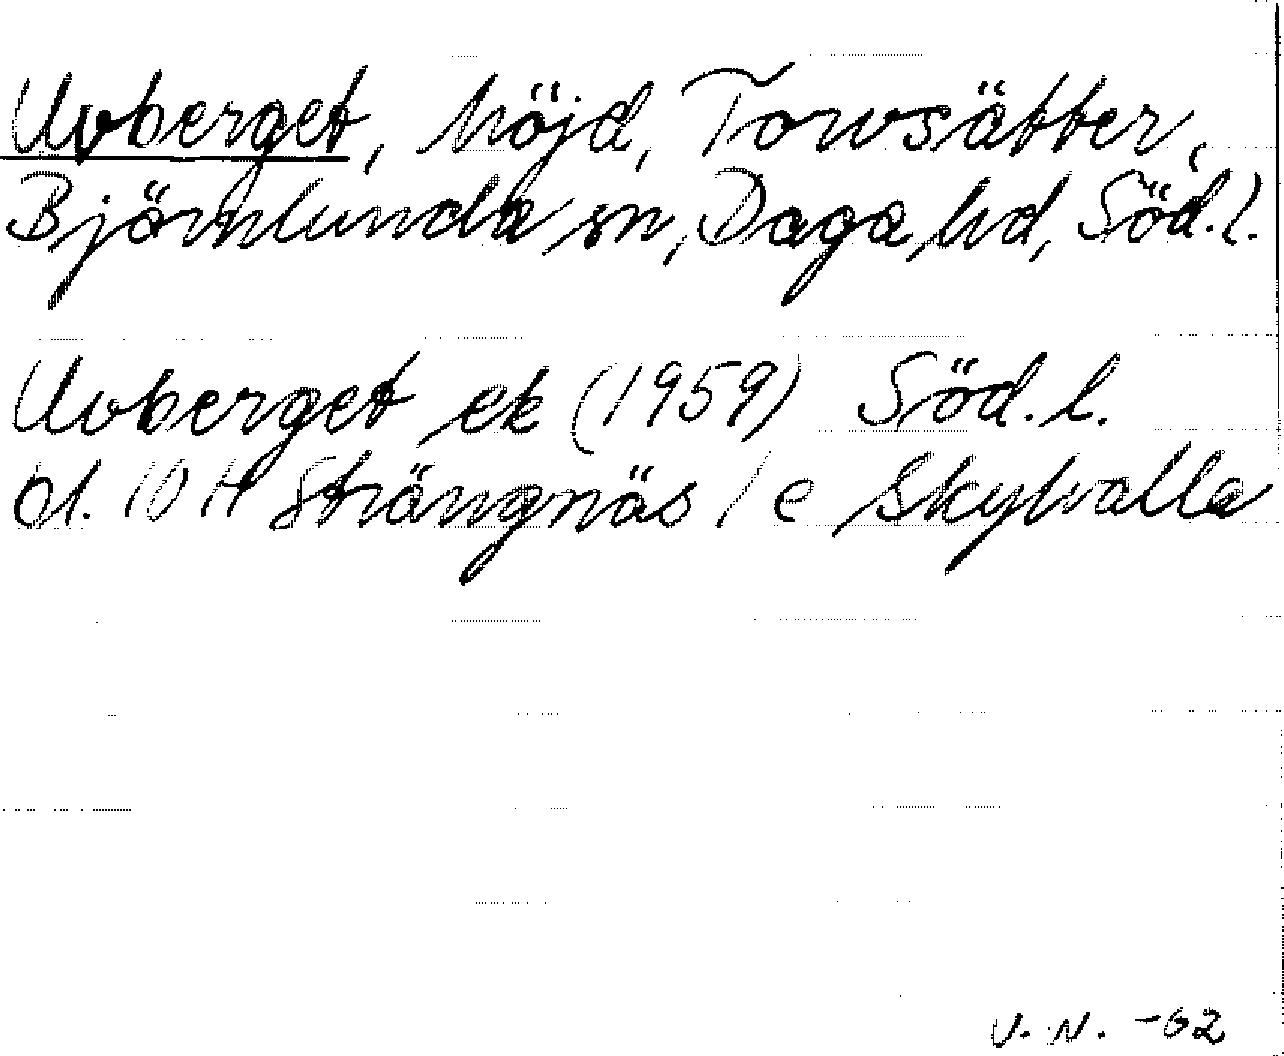 Uvberget, höjd, Torvsätter,
Björnlunda sn, Daga hd, Söd.l.
Uvberget ek (1959) Söd.l.
bl. 10 H Strängnäs / e Skyhalla
V. N. -62